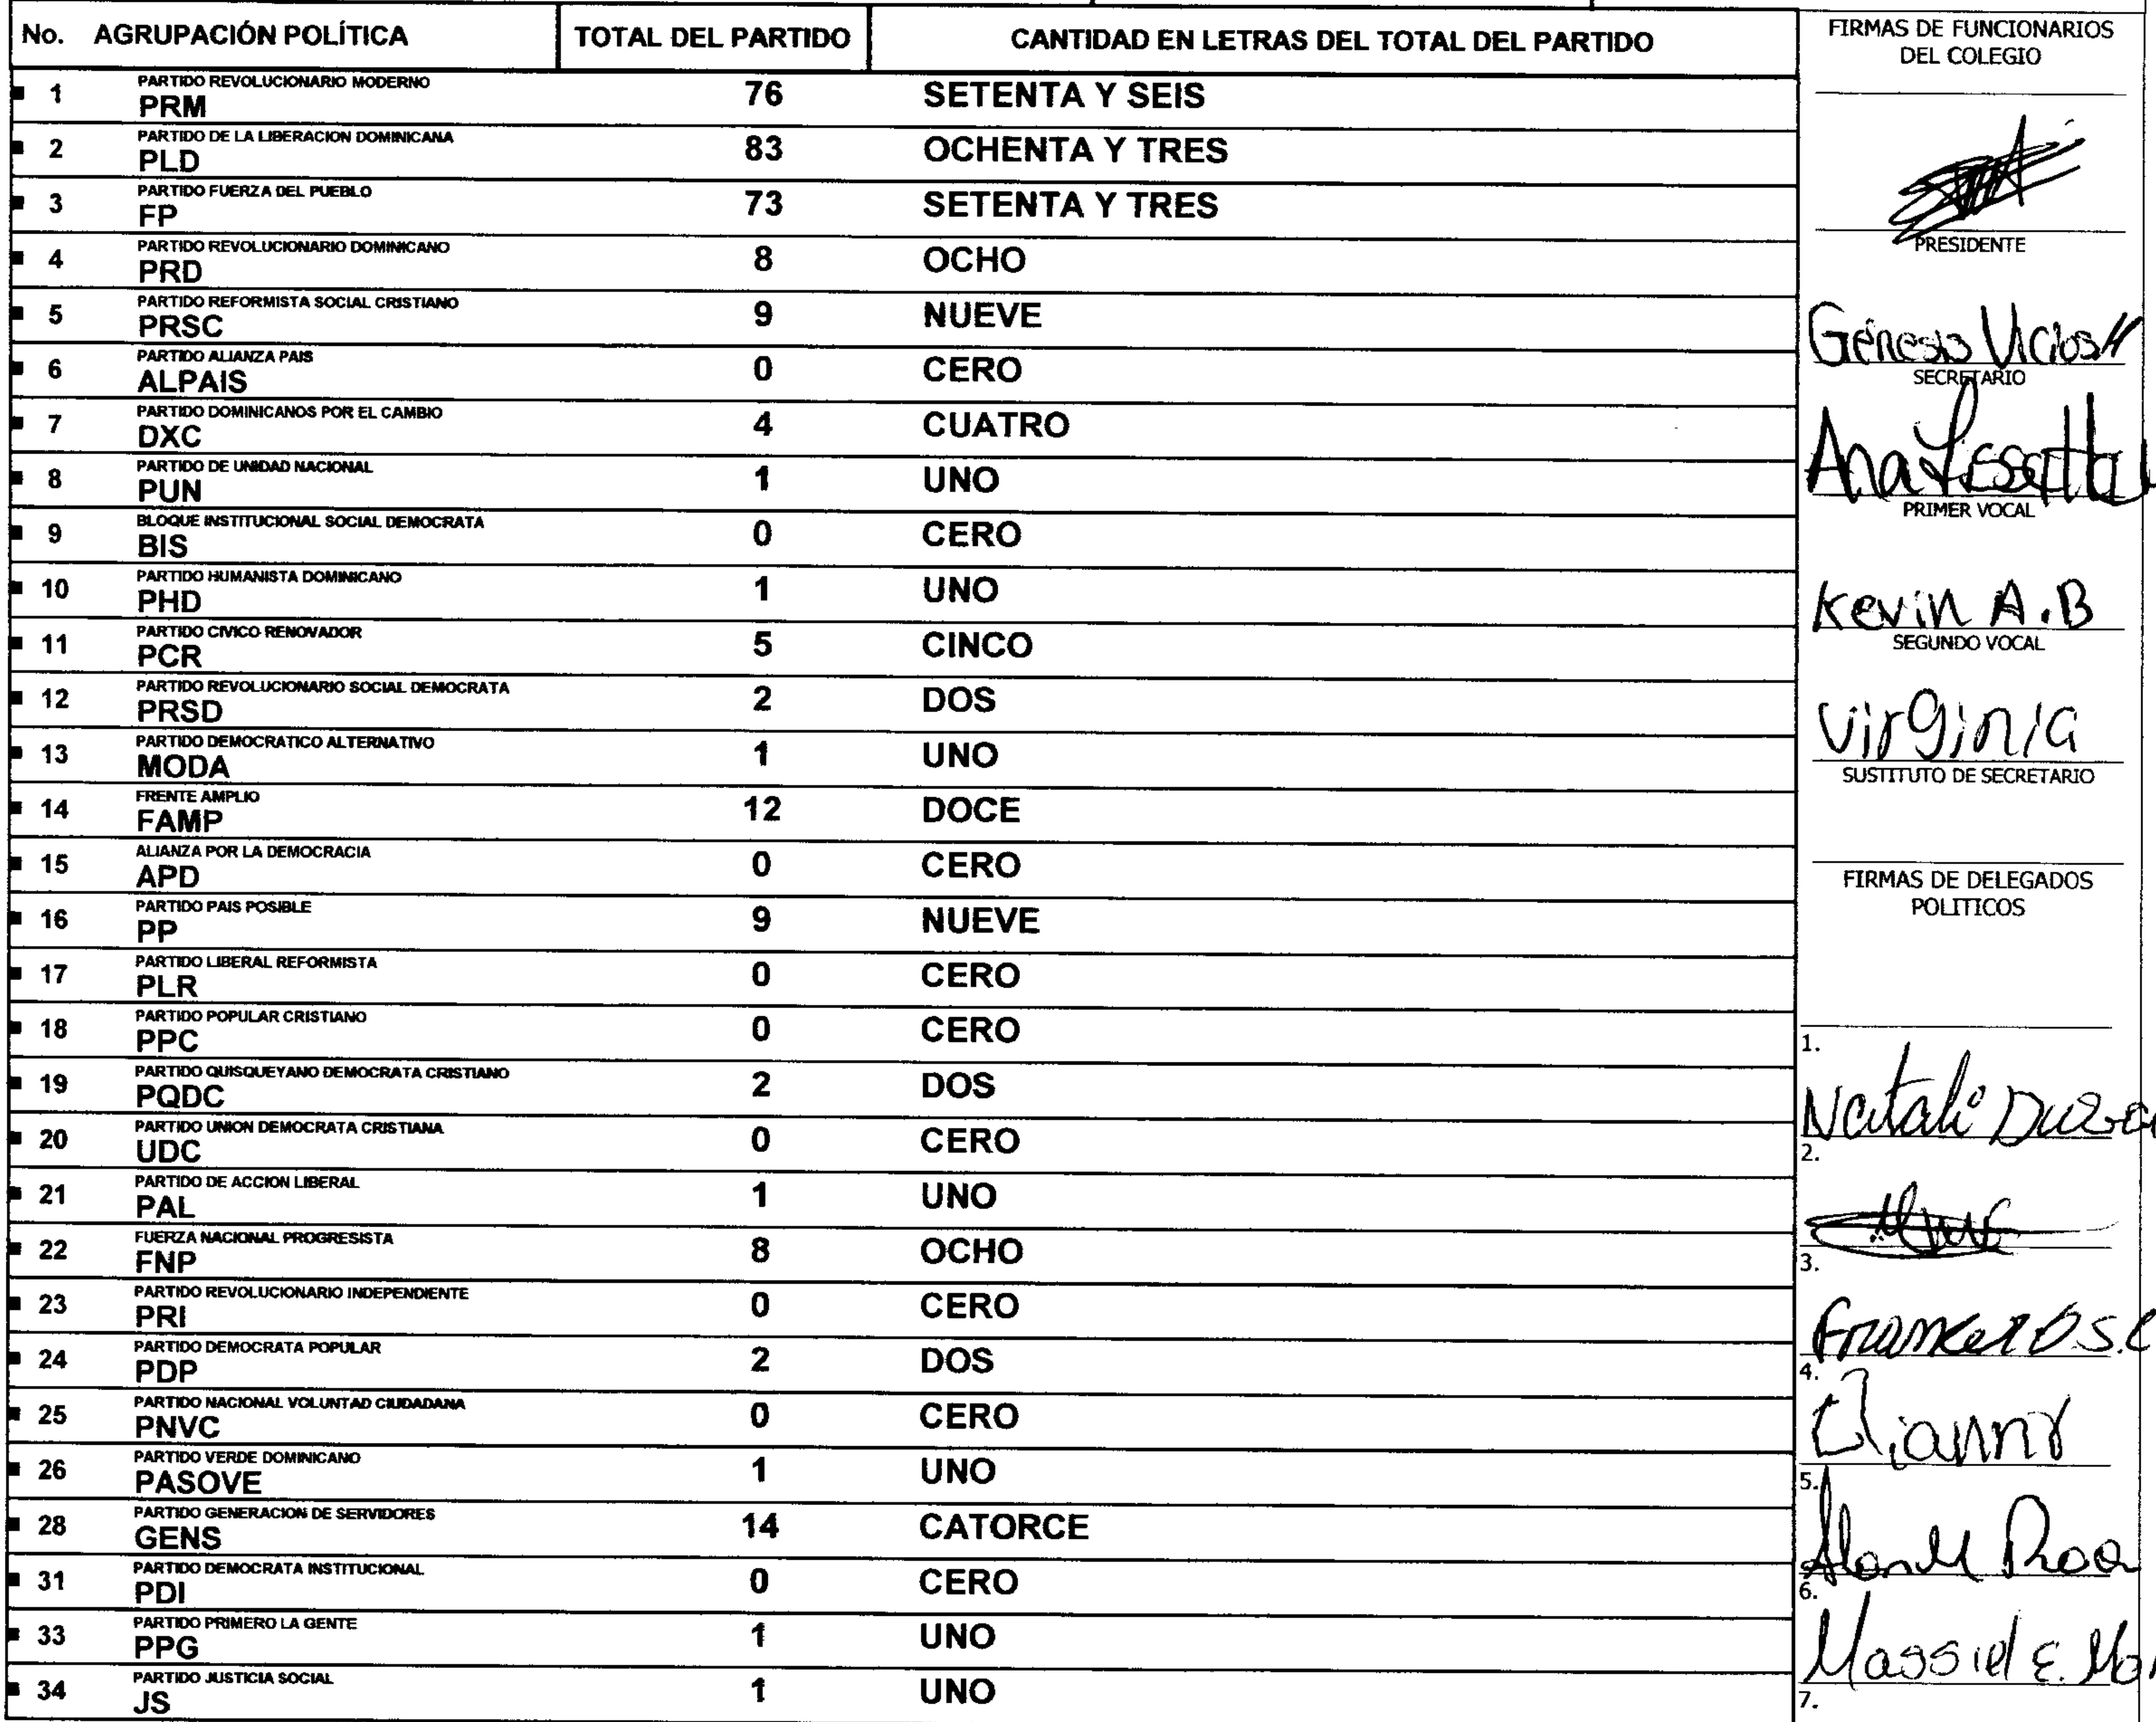 No. AGRUPACIÓN POLÍTICA TOTAL DEL PARTIDO CANTIDAD EN LETRAS DEL TOTAL DEL PARTIDO
1 PARTIDO REVOLUCIONARIO MODERNO
PRM 76 SETENTA Y SEIS
2 PARTIDO DE LA LIBERACION DOMINICANA
PLD 83 OCHENTA Y TRES
3 PARTIDO FUERZA DEL PUEBLO
FP 73 SETENTA Y TRES
4 PARTIDO REVOLUCIONARIO DOMINICANO
PRD 8 OCHO
5 PARTIDO REFORMISTA SOCIAL CRISTIANO
PRSC 9 NUEVE
6 PARTIDO ALIANZA PAIS
ALPAIS 0 CERO
7 PARTIDO DOMINICANOS POR EL CAMBIO
DXC 4 CUATRO
8 PARTIDO DE UNIDAD NACIONAL
PUN 1 UNO
9 BLOQUE INSTITUCIONAL SOCIAL DEMOCRATA
BIS 0 CERO
10 PARTIDO HUMANISTA DOMINICANO
PHD 1 UNO
11 PARTIDO CIVICO RENOVADOR
PCR 5 CINCO
12 PARTIDO REVOLUCIONARIO SOCIAL DEMOCRATA
PRSD 2 DOS
13 PARTIDO DEMOCRATICO ALTERNATIVO
MODA 1 UNO
14 FRENTE AMPLIO
FAMP 12 DOCE
15 ALIANZA POR LA DEMOCRACIA
APD 0 CERO
16 PARTIDO PAIS POSIBLE
PP 9 NUEVE
17 PARTIDO LIBERAL REFORMISTA
PLR 0 CERO
18 PARTIDO POPULAR CRISTIANO
PPC 0 CERO
19 PARTIDO QUISQUEYANO DEMOCRATA CRISTIANO
PQDC 2 DOS
20 PARTIDO UNION DEMOCRATA CRISTIANA
UDC 0 CERO
21 PARTIDO DE ACCION LIBERAL
PAL 1 UNO
22 FUERZA NACIONAL PROGRESISTA
FNP 8 OCHO
23 PARTIDO REVOLUCIONARIO INDEPENDIENTE
PRI 0 CERO
24 PARTIDO DEMOCRATA POPULAR
PDP 2 DOS
25 PARTIDO NACIONAL VOLUNTAD CIUDADANA
PNVC 0 CERO
26 PARTIDO VERDE DOMINICANO
PASOVE 1 UNO
28 PARTIDO GENERACION DE SERVIDORES
GENS 14 CATORCE
31 PARTIDO DEMOCRATA INSTITUCIONAL
PDI 0 CERO
33 PARTIDO PRIMERO LA GENTE
PPG 1 UNO
34 PARTIDO JUSTICIA SOCIAL
JS 1 UNO
FIRMAS DE FUNCIONARIOS
DEL COLEGIO
PRESIDENTE
Génesis
SECRETARIO
Ana
PRIMER VOCAL
Kevin A.B
SEGUNDO VOCAL
Virginia
SUSTITUTO DE SECRETARIO
FIRMAS DE DELEGADOS
POLITICOS
1.
Natali
2.
3.
4.
5.
6.
Massiel E.
7.